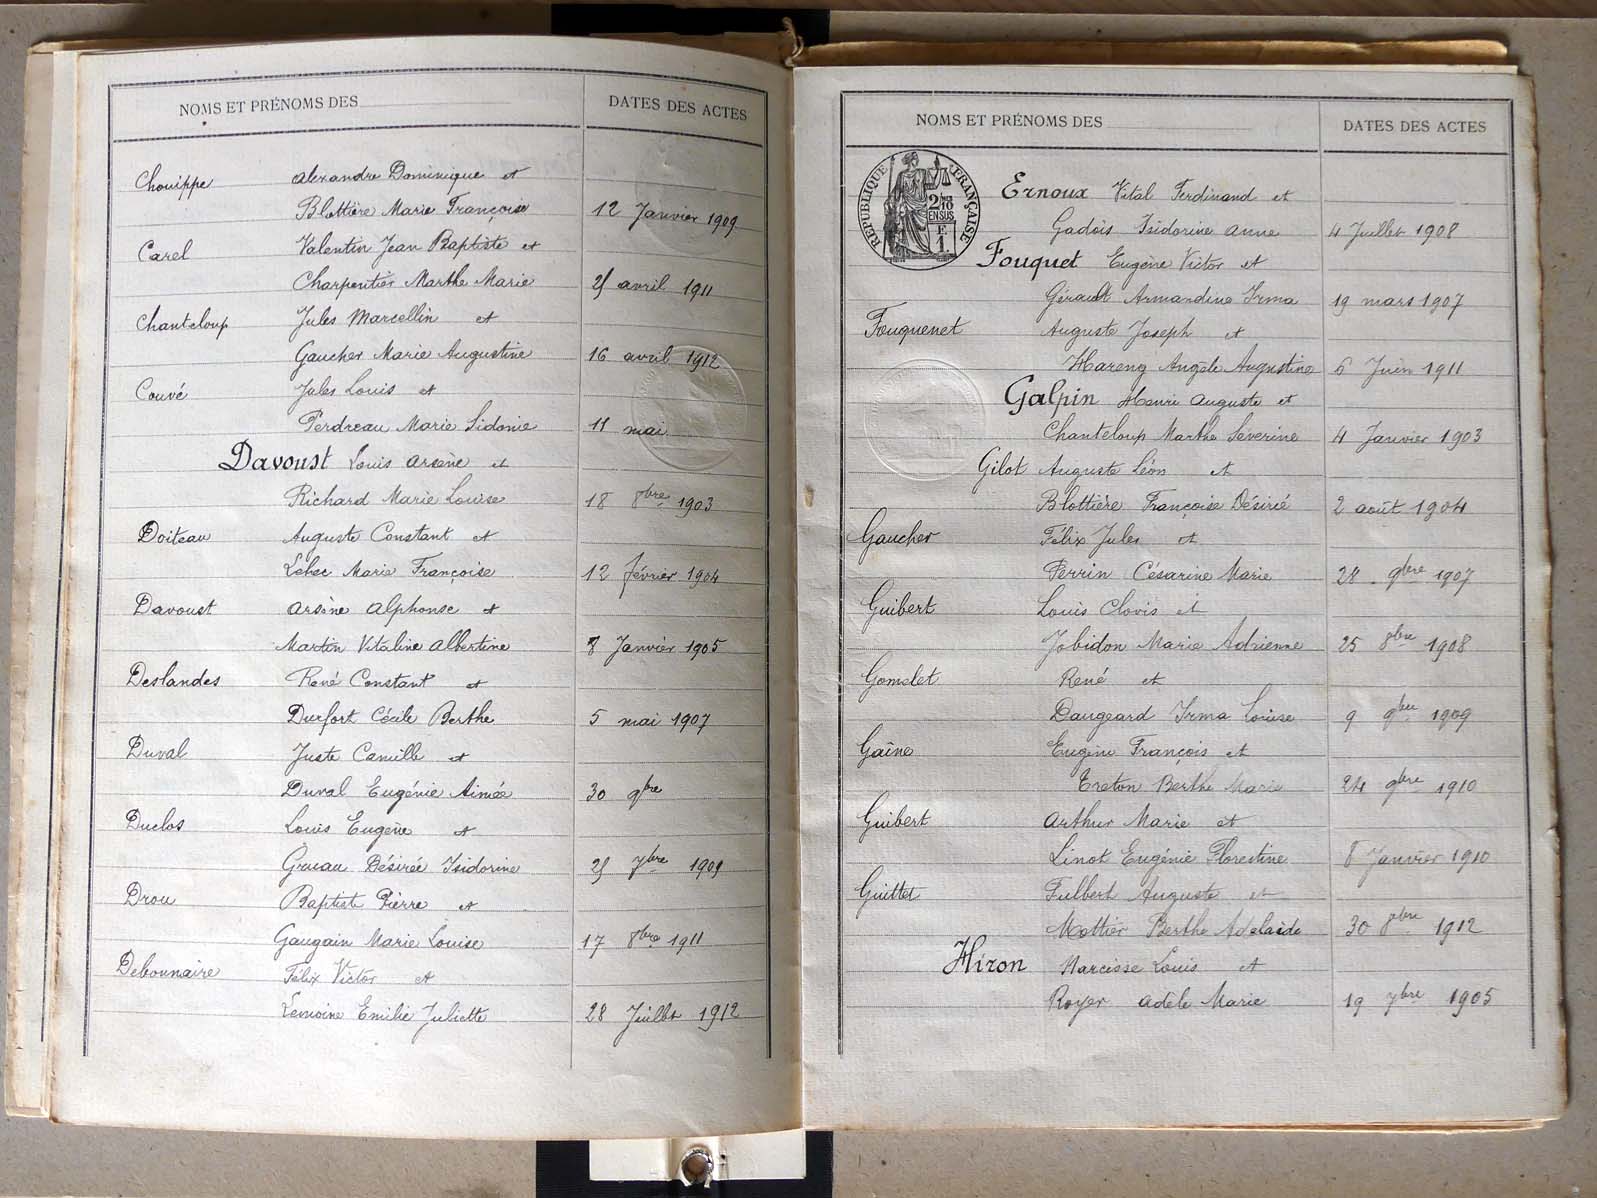 NOMS ET PRÉNOMS DES DATES DES ACTES
Chouippe Alexandre Dominique et
Blottière Marie Françoise 12 Janvier 1909
Carel Valentin Jean Baptiste et
Charpentier Marthe Marie 25 avril 1911
Chanteloup Jules Marcellin et
Gaucher Marie Augustine 16 avril 1912
Couvé Jules Louis et
Perdreau Marie Sidonie 11 mai
Davoust Louis Arsène et
Richard Marie Louise 18 8bre 1903
Doiteau Auguste Constant et
Lehec Marie Françoise 12 février 1904
Davoust Arsène Alphonse et
Martin Vitaline Albertine 8 Janvier 1905
Deslandes René Constant et
Durfort Cécile Berthe 5 mai 1907
Duval Juste Camille et
Duval Eugénie Aimée 30 9bre
Duclos Louis Eugène et
Gruau Désirée Isidorine 25 7bre 1909
Drou Baptiste Pierre et
Gaugain Marie Louise 17 8bre 1911
Debonnaire Félix Victor et
Lemoine Emilie Juliette 28 Juillet 1912
NOMS ET PRÉNOMS DES DATES DES ACTES
RÉPUBLIQUE FRANÇAISE
2/10
EN SUS
F
1
Ernoux Vital Ferdinand et
Gadois Isidorine Anne 4 Juillet 1908
Fouquet Eugène Victor et
Gérault Armandine Irma 19 mars 1907
Fouquenet Auguste Joseph et
Hareng Angèle Augustine 6 Juin 1911
Galpin Henri Auguste et
Chanteloup Marthe Séverine 4 Janvier 1903
Gilot Auguste Léon et
Blottière Françoise Désirié 2 août 1904
Gaucher Félix Jules et
Perrin Césarine Marie 28 9bre 1907
Guibert Louis Clovis et
Jobidon Marie Adrienne 25 8bre 1908
Gomelet René et
Daugeard Irma Louise 9 9bre 1909
Gaîne Eugène François et
Creton Berthe Marie 24 9bre 1910
Guibert Arthur Marie et
Linot Eugénie Florestine 8 Janvier 1910
Guittet Fulbert Auguste et
Mottier Berthe Adelaïde 30 9bre 1912
Hiron Narcisse Louis et
Royer Adèle Marie 19 7bre 1905